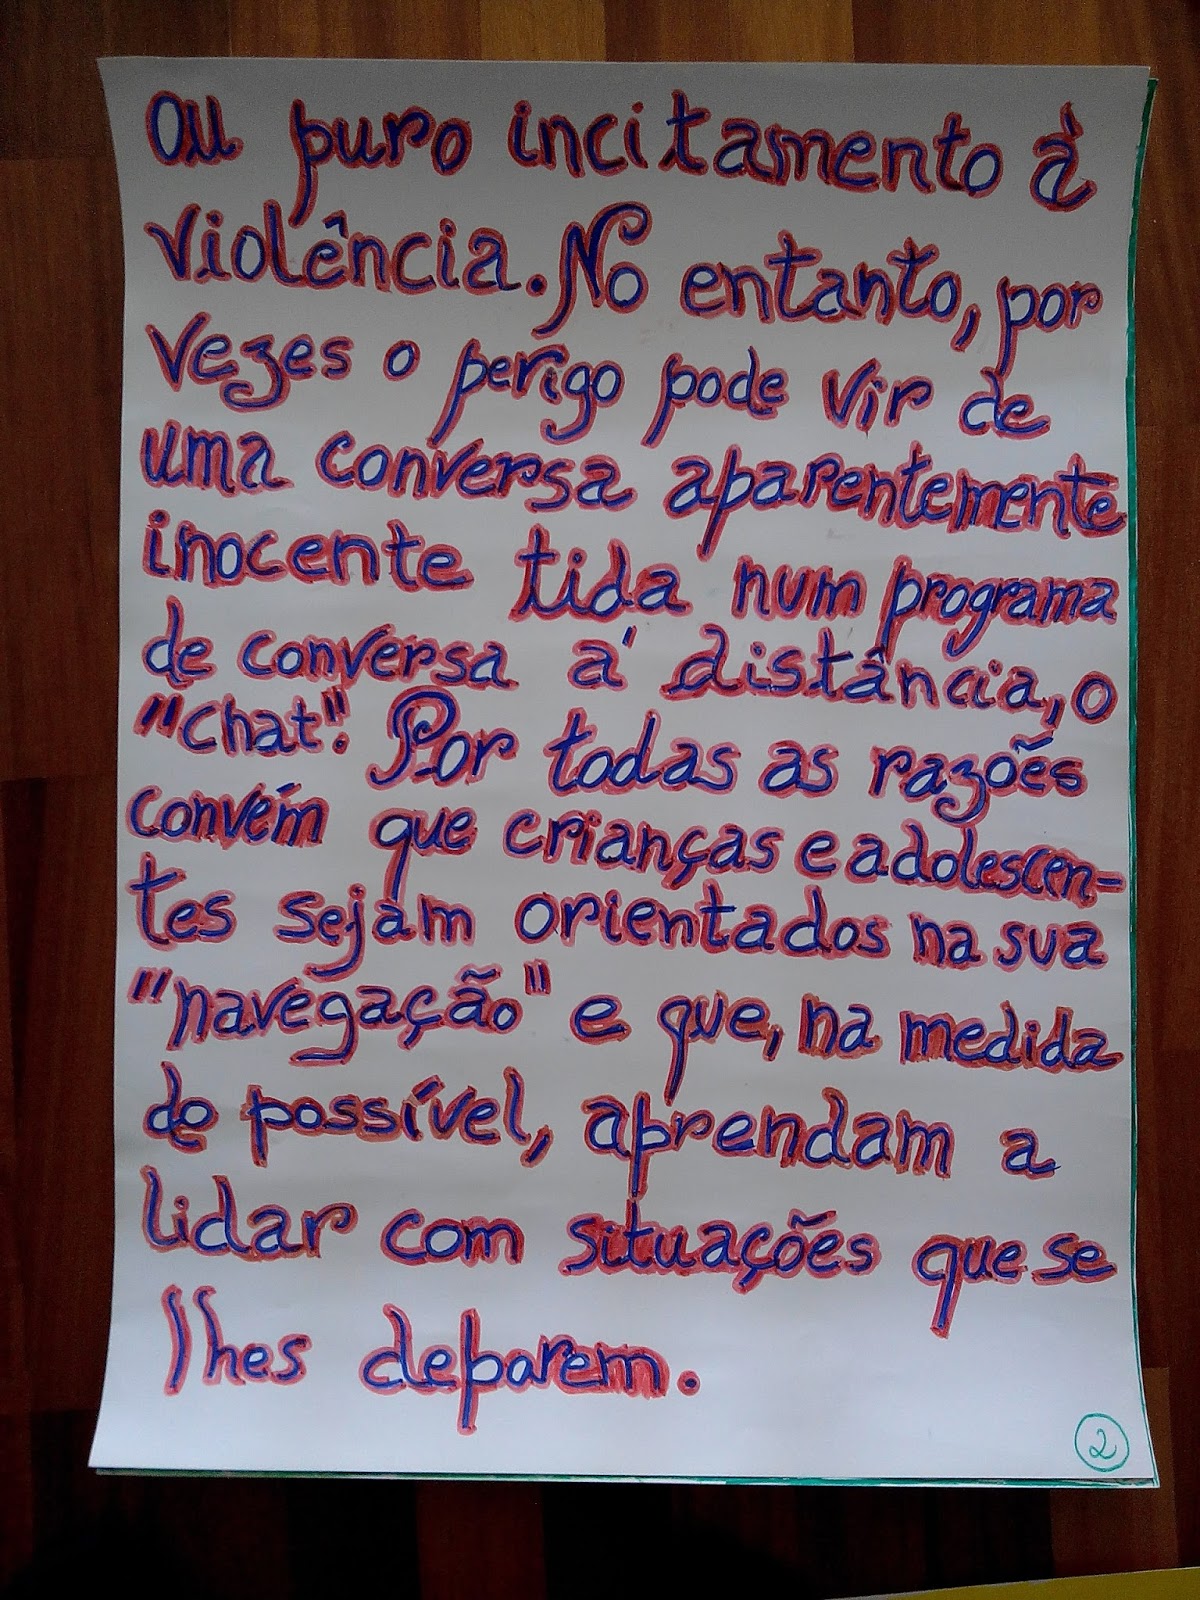 ou puro incitamento à
violência. No entanto, por
vezes o perigo pode vir de
uma conversa aparentemente
inocente tida num programa
de conversa á distância, o
"chat". Por todas as razões
convém que crianças e adolescen-
tes sejam orientados na sua
"navegação" e que, na medida
do possível, aprendam a
lidar com situações que se
lhes deparem.
2